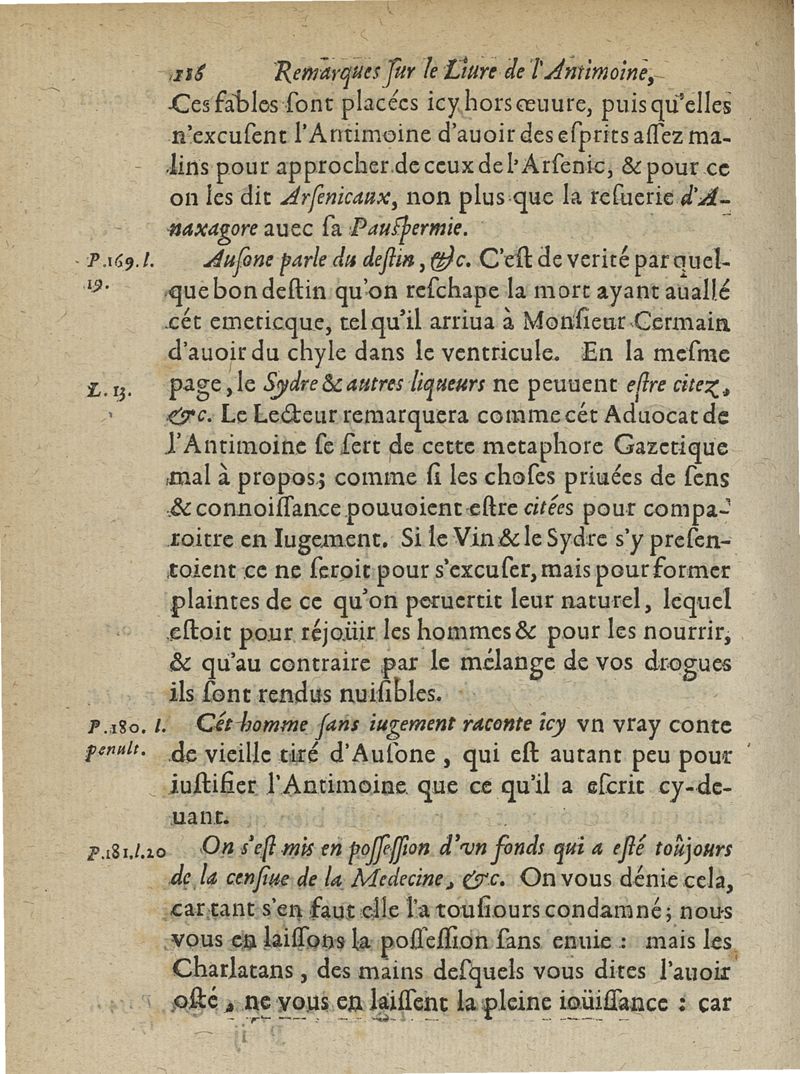 116 Remarques ſur le Liure de l'Antimoine,
Ces fables ſont placées icy hors œuure, puis qu'elles
n'excuſent l'Antimoine d'auoir des eſprits aſſez ma-
lins pour approcher de ceux de l'Arſenic, & pour ce
on les dit Arſenicaux, non plus que la reſuerie d'A-
naxagore auec ſa Pauſpermie.
P.169.l.
19.
Auſone parle du deſtin, &c. C'eſt de verité par quel-
que bon deſtin qu'on reſchape la mort ayant auallé
cét emeticque, tel qu'il arriua à Monſieur Germain
d'auoir du chyle dans le ventricule. En la meſme
L. 13.
page, le Sydre & autres liqueurs ne peuuent eſtre citez,
&c. Le Lecteur remarquera comme cét Aduocat de
l'Antimoine ſe ſert de cette metaphore Gazetique
mal à propos; comme ſi les choſes priuées de ſens
& connoiſſance pouuoient eſtre citées pour compa-
roitre en Iugement. Si le Vin & le Sydre s'y preſen-
toient ce ne ſeroit pour s'excuſer, mais pour former
plaintes de ce qu'on peruertit leur naturel, lequel
eſtoit pour réjoüir les hommes & pour les nourrir,
& qu'au contraire par le mélange de vos drogues
ils ſont rendus nuiſibles.
P.180. l.
penult.
Cét homme ſans iugement raconte icy vn vray conte
de vieille tiré d'Auſone, qui eſt autant peu pour
iuſtifier l'Antimoine que ce qu'il a eſcrit cy-de-
uant.
P.181.l.20
On s'eſt mis en poſſeſſion d'vn fonds qui a eſté toûjours
de la cenſiue de la Medecine, &c. On vous dénie cela,
car tant s'en faut elle l'a touſiours condamné; nous
vous en laiſſons la poſſeſſion ſans enuie : mais les
Charlatans, des mains deſquels vous dites l'auoir
oſté, ne vous en laiſſent la pleine ioüiſſance : car